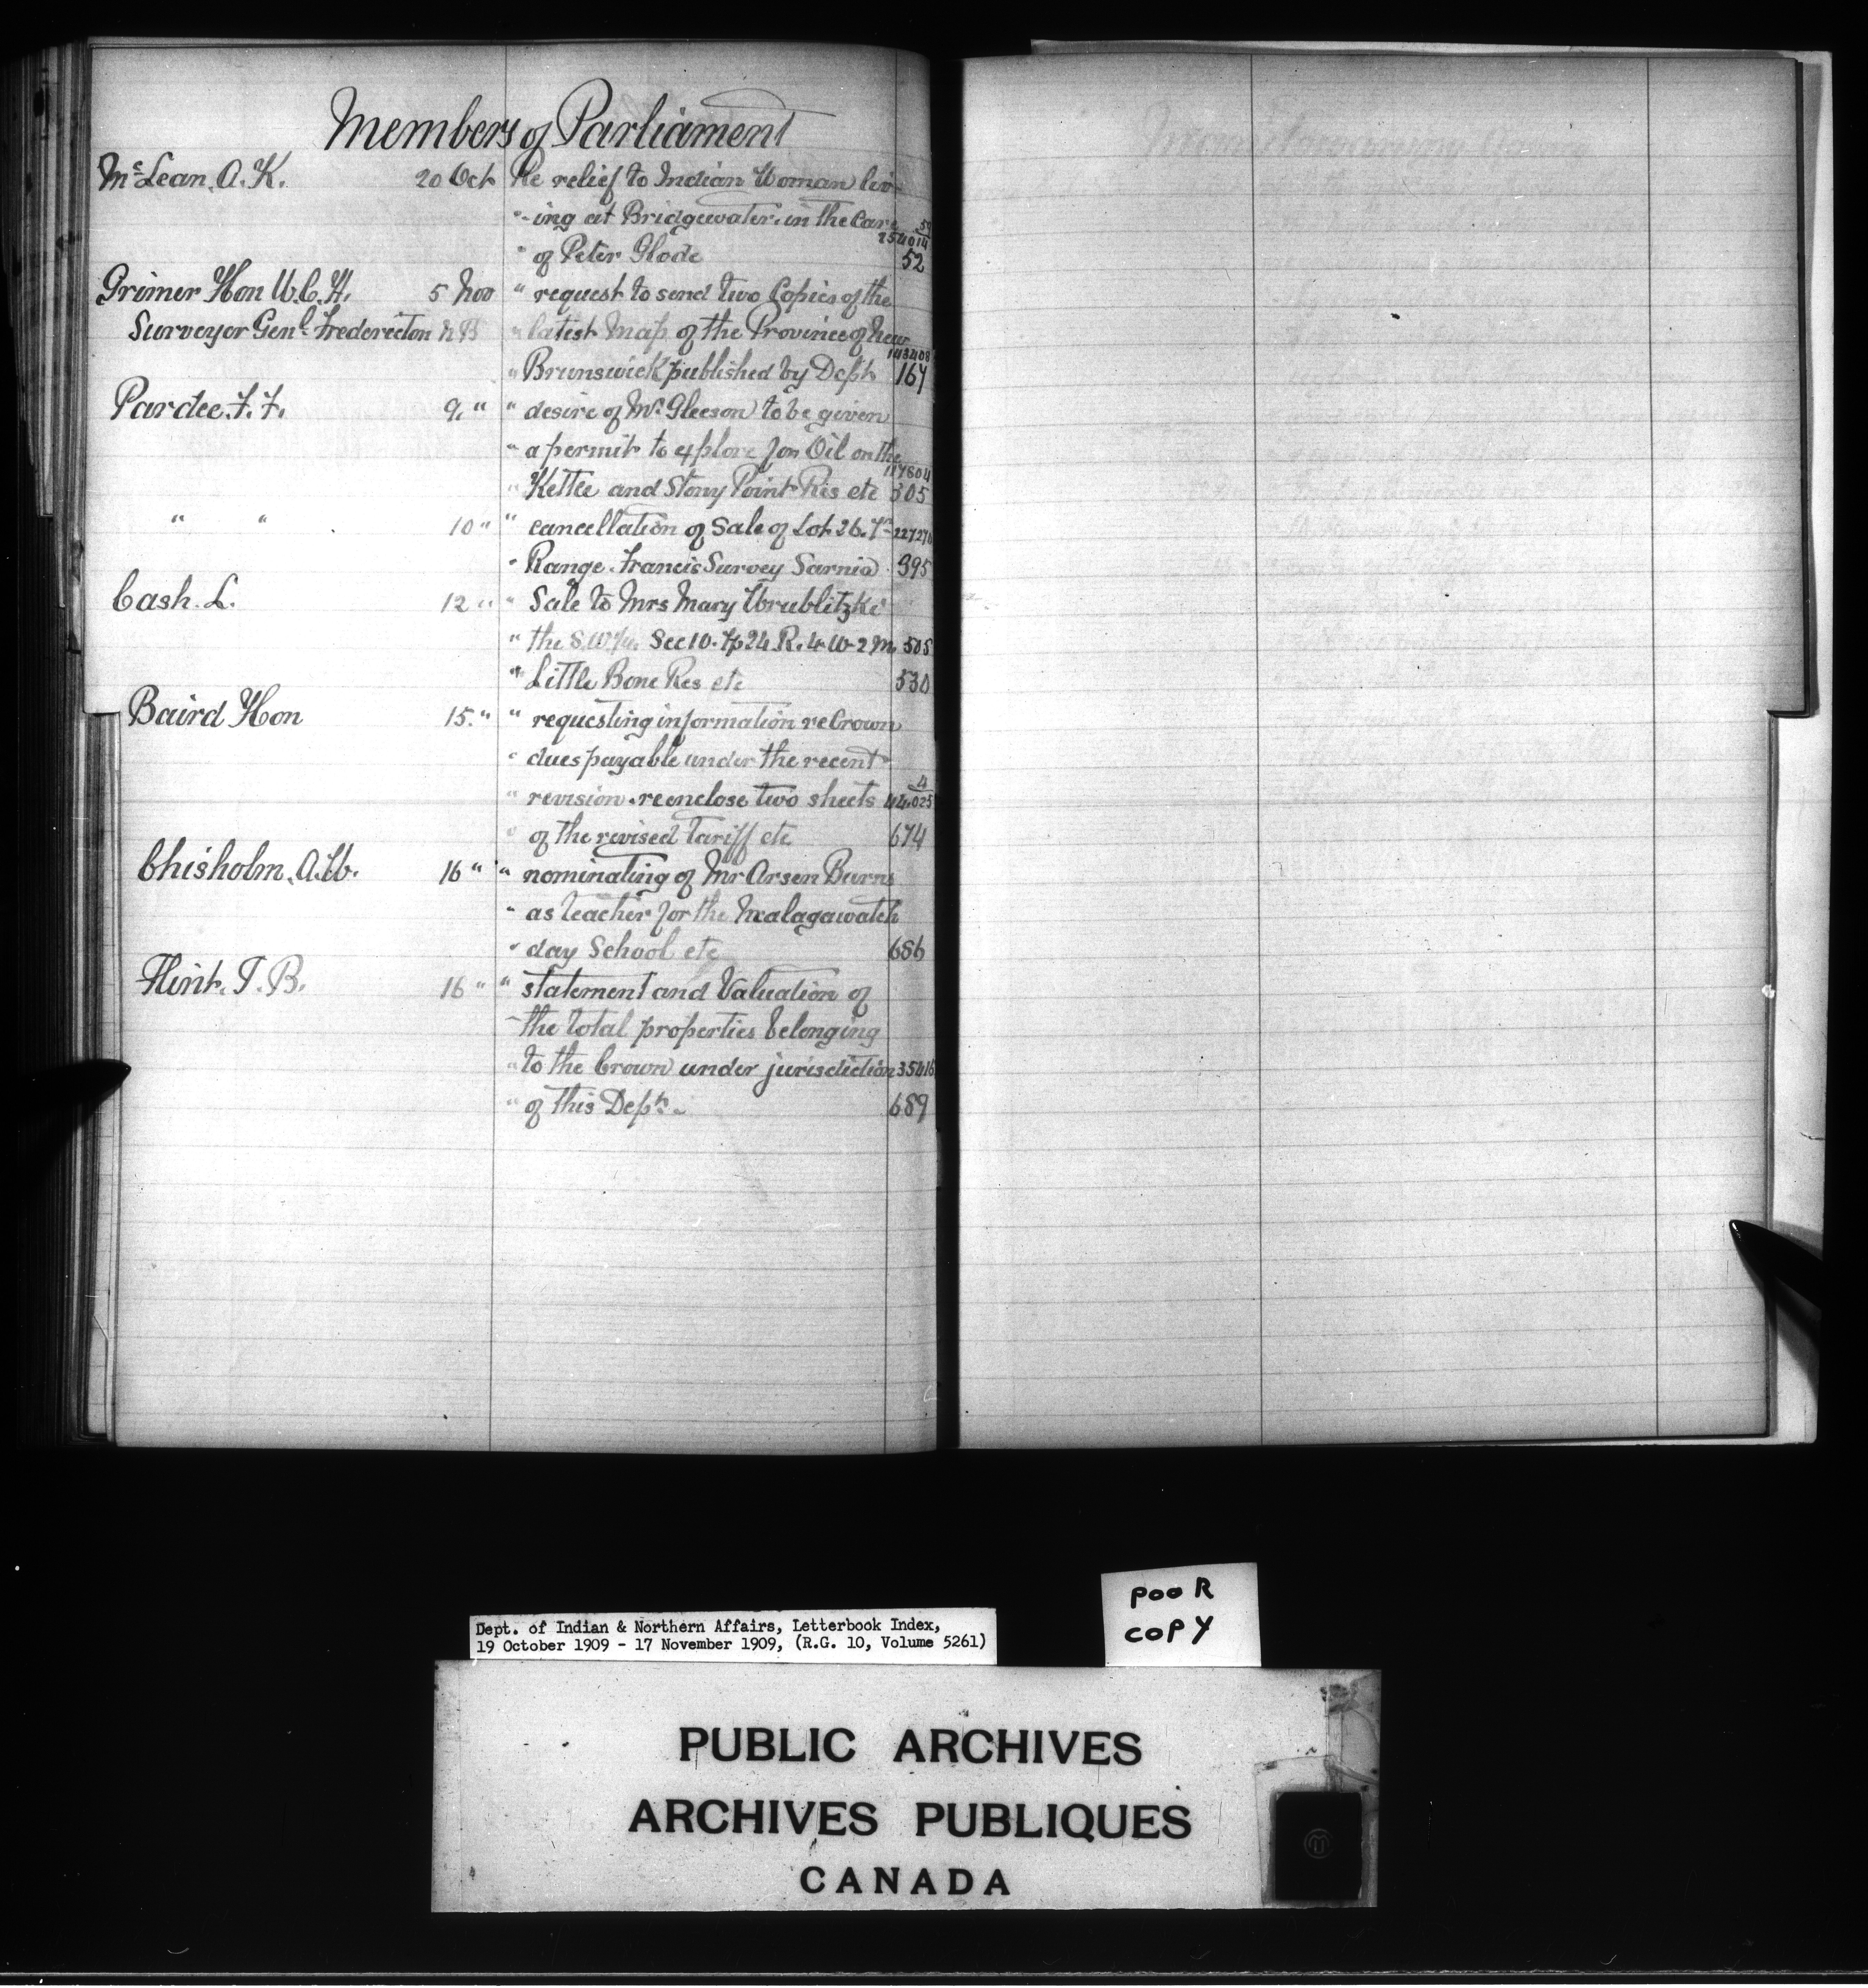 Members of Parliament
McLean. A. K. 20 Oct Re relief to Indian Woman liv-
"-ing at Bridgewater. in the Care 59
254014
" of Peter Glode 52
Grimer Hon W.C.H. 5 Nov " request to send two Copies of the
Surveyor Genl. Fredericton N B " latest Map of the Province of New
143408
" Brunswick published by Dept 167
Pardee. F. F. 9. " " desire of Mr Gleeson to be given
" a permit to explore for Oil on the
117804
" Kettle and Stony Point Res etc 305
" " 10 " " cancellation of Sale of Lot 26. 7th
" Range. Francis Survey Sarnia. 395
Cash. L. 12 " " Sale to Mrs Mary Wrublitzke
" the S.W.¼. Sec 10. Tp 24 R. 4 W 2 M. 505
" Little Bone Res etc 530
Baird Hon 15. " " requesting information re Crown
" dues payable under the recent
4
" revision. re enclose two sheets 44.025
" of the revised Tariff etc 674
Chisholm. A.W. 16 " " nominating of Mr Arsen Burns
" as teacher for the Malagawatch
" day School etc 686
Flint. T. B. 16 " " statement and Valuation of
" the total properties belonging
" to the Crown under jurisdiction 35416
" of this Dept. 689
Dept. of Indian & Northern Affairs, Letterbook Index,
19 October 1909 - 17 November 1909, (R.G. 10, Volume 5261)
POOR
COPY
PUBLIC ARCHIVES
ARCHIVES PUBLIQUES
CANADA